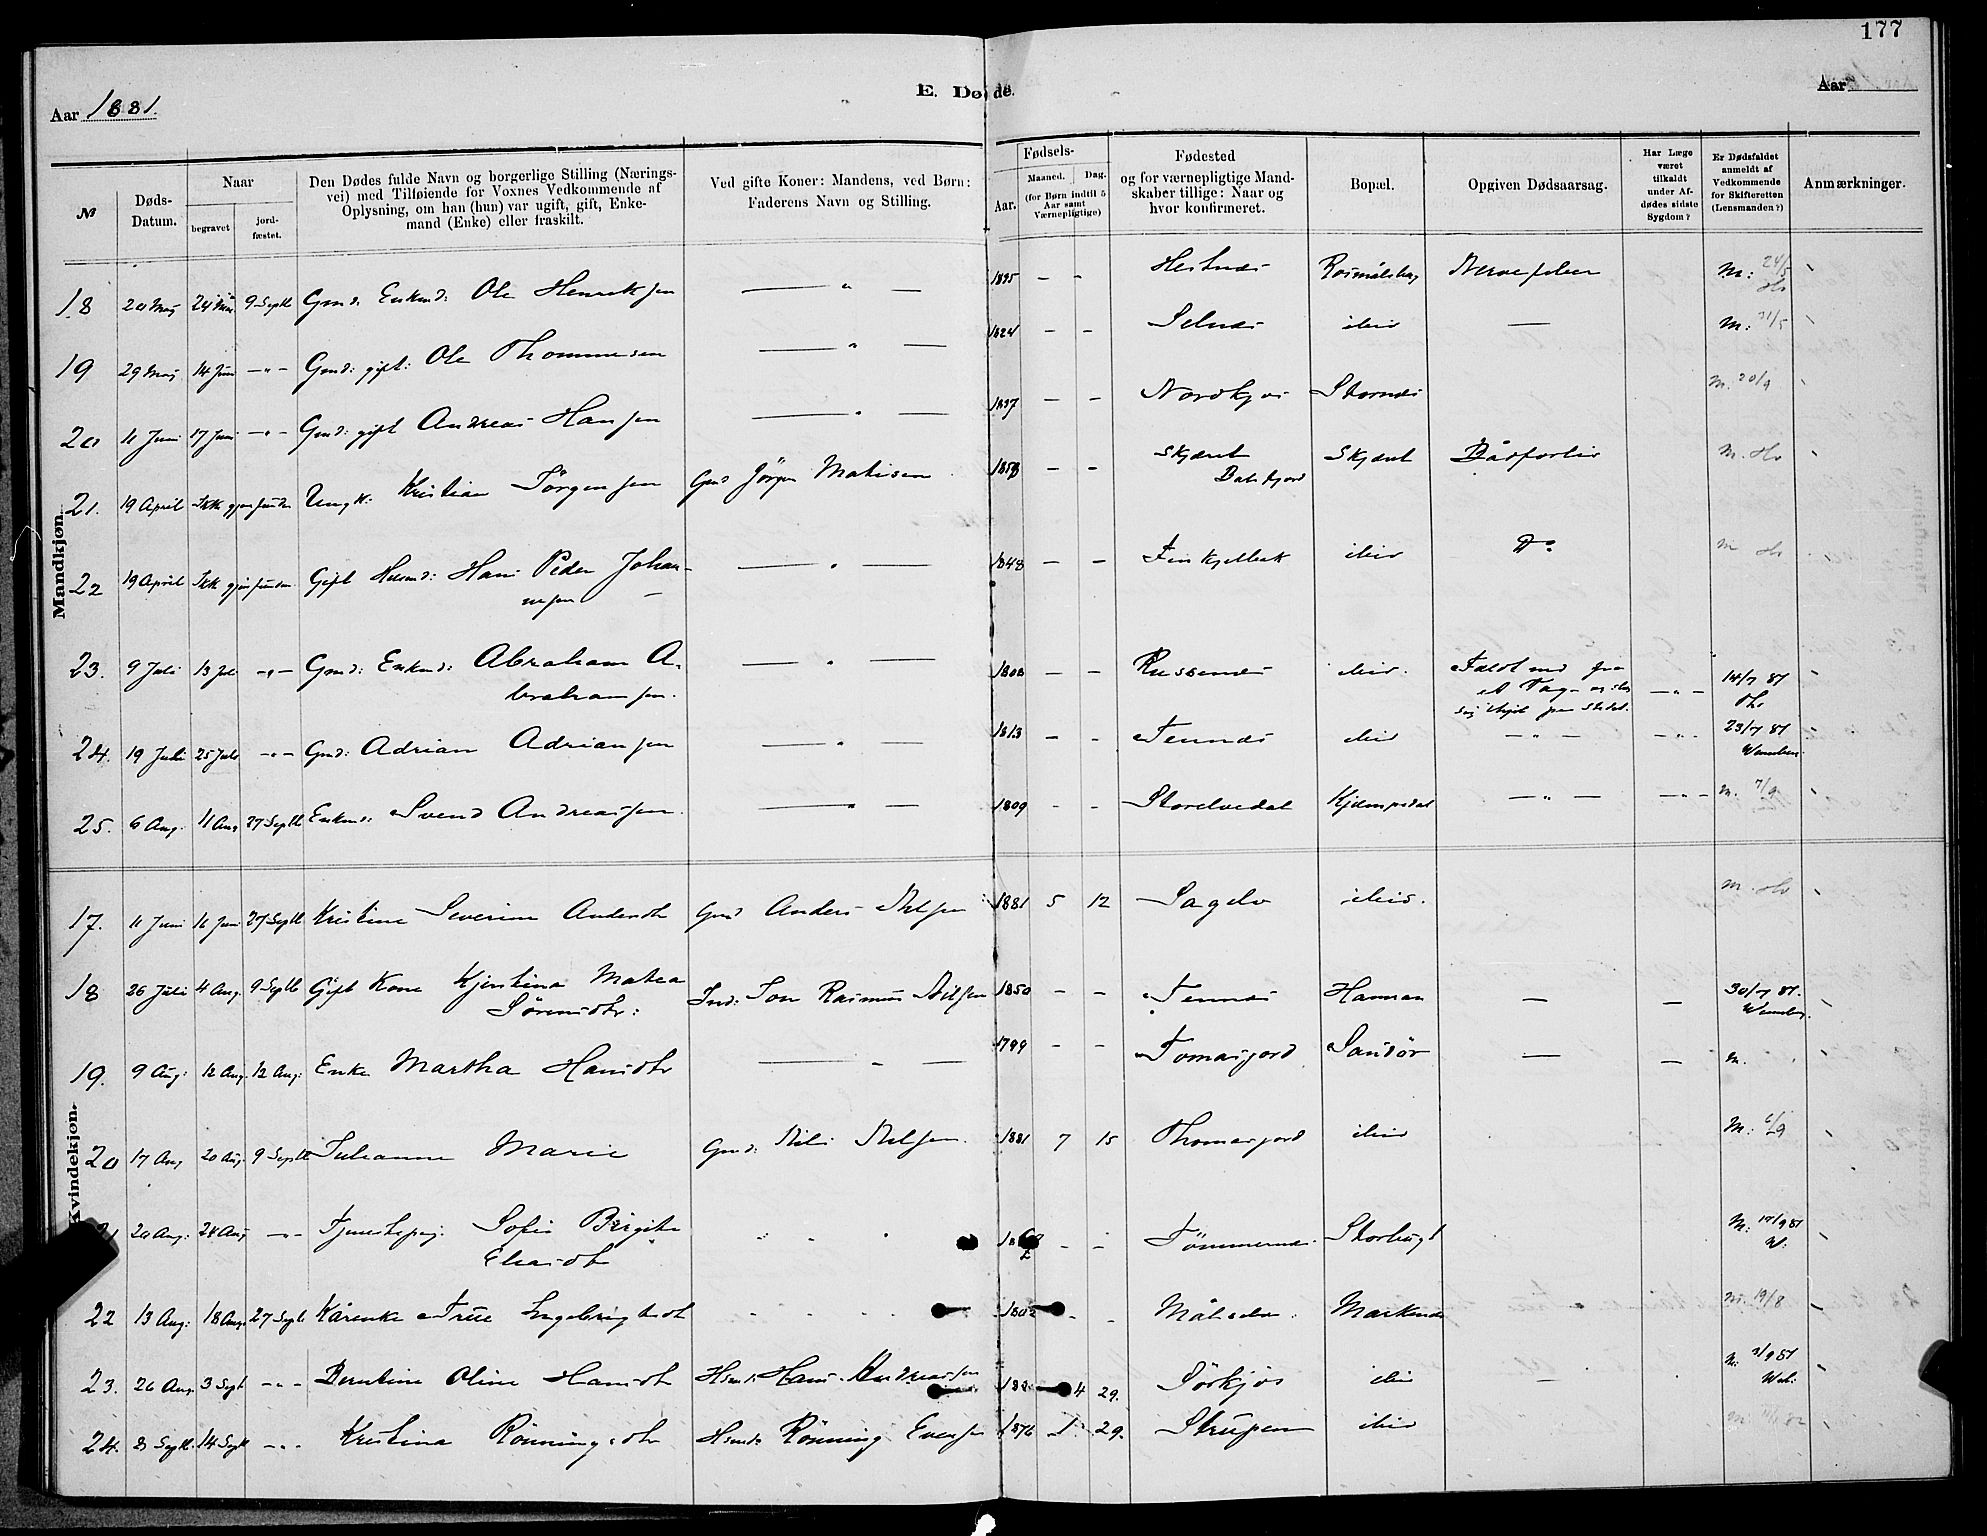 177
Aar 1881.
E. Døde.
Aar
№
Døds-Datum.
Naar
begravet
jord-fæstet.
Den Dødes fulde Navn og borgerlige Stilling (Nærings-
vei) med Tilføiende for Voxnes Vedkommende af
Oplysning, om han (hun) var ugift, gift, Enke-
mand (Enke) eller fraskilt.
Ved gifte Koner: Mandens, ved Børn:
Faderens Navn og Stilling.
Fødsels-
Aar.
Maaned.
Dag.
(for Børn indtil 5
Aar samt
Værnepligtige)
Fødested
og for værnepligtige Mand-
skaber tillige: Naar og
hvor konfirmeret.
Bopæl.
Opgiven Dødsaarsag.
Har Læge
været
tilkaldt
under Af-
dødes sidste
Sygdom?
Er Dødsfaldet
anmeldt af
Vedkommende
for Skifteretten
(Lensmanden?)
Anmærkninger.
Mandkjøn.
18 20 Maj 24 Mai 9 Septb Gmd: Enkmd: Ole Henriksen — " — 1835 - - Hestnæs Nervefeber M: 24/5
19 29 Maj 14 Juni -"- Gmd: gift: Ole Thommesen — " — 1824 - - Selnæs ibid — M: 31/5
20 11 Juni 17 Juni -"- Gmd: gift Andreas Hansen — " — 1837 - - Nordkjos Stornæs M. 20/9
21. 19 April Ikke gjenfunden Ungk: Kristian Jörgensen Gmd Jörgen Matisen 1858 - - Skjæret Balsfjord Skjæret Båtforlis M.
22 19 April Ikke gjenfunden Gift Husmd: Hans Peder Johan-
nesen — " — 1848 - - ibid Do M
23. 9 Juli 13 Juli -"- Gmd: Enkmd: Abraham A-
brahamsen. — " — 1808 - - Russenæs ibid. Faldt ned fra
et Tag 14/7 81
24. 19 Juli 25 Juli -"- Gmd: Adrian Adriansen — " — 1813 - - Tennæs ibid - " - -"- 23/7 81
25. 6 Aug. 11 Aug 27 Septb Enkmd: Svend Andreassen. — " — 1809 - - Storelvedal Kjempedal - " - -"- M. 7/9
Kvindekjøn.
17. 11 Juni 16 Juni 27 Septb Kristine Severine Andersdtr Gmd Anders Nilsen 1881 5 12 Sagelv ibid. M.
18 26 Juli 4 Aug. 9 Septb Gift Kone Kjerstina Matea
Sörensdtr: Ind: Jon Rasmus Nilsen 1850 - - Tennæs Hamran — - 30/7 81.
19. 9 Aug: 12 Aug. 12 Aug: Enke Martha Hansdtr — " — 1799 - - Tomasjord Sandör — - M.
20 17 Aug 20 Aug. 9 Septb Julianne Marie Gmd: Nils Nilsen. 1881 7 15 Thomasjord ibid M: 6/9
20 Aug: 24 Aug -"- Tjenestepig. Sofie Birgite
Eliasdtr - - Tömmernes. Storbugt M: 17/9 81
22 13 Aug: 18 Aug. 27 Septb Karenke True Ingebrigtsdt 1802 - - Målselv. Markenæs M. 19/8
23. 26 Aug. 3 Sept -"- Berntine Oline Hansdt Hsmd: Hans Andreassen 4 29. Sörkjos ibid — M: 3/9 81
24. 8 Septb. 14 Sept -"- Kristina Rönningsdtr Hsmd: Rönning Evensen 1876 1 29. Strupen ibid